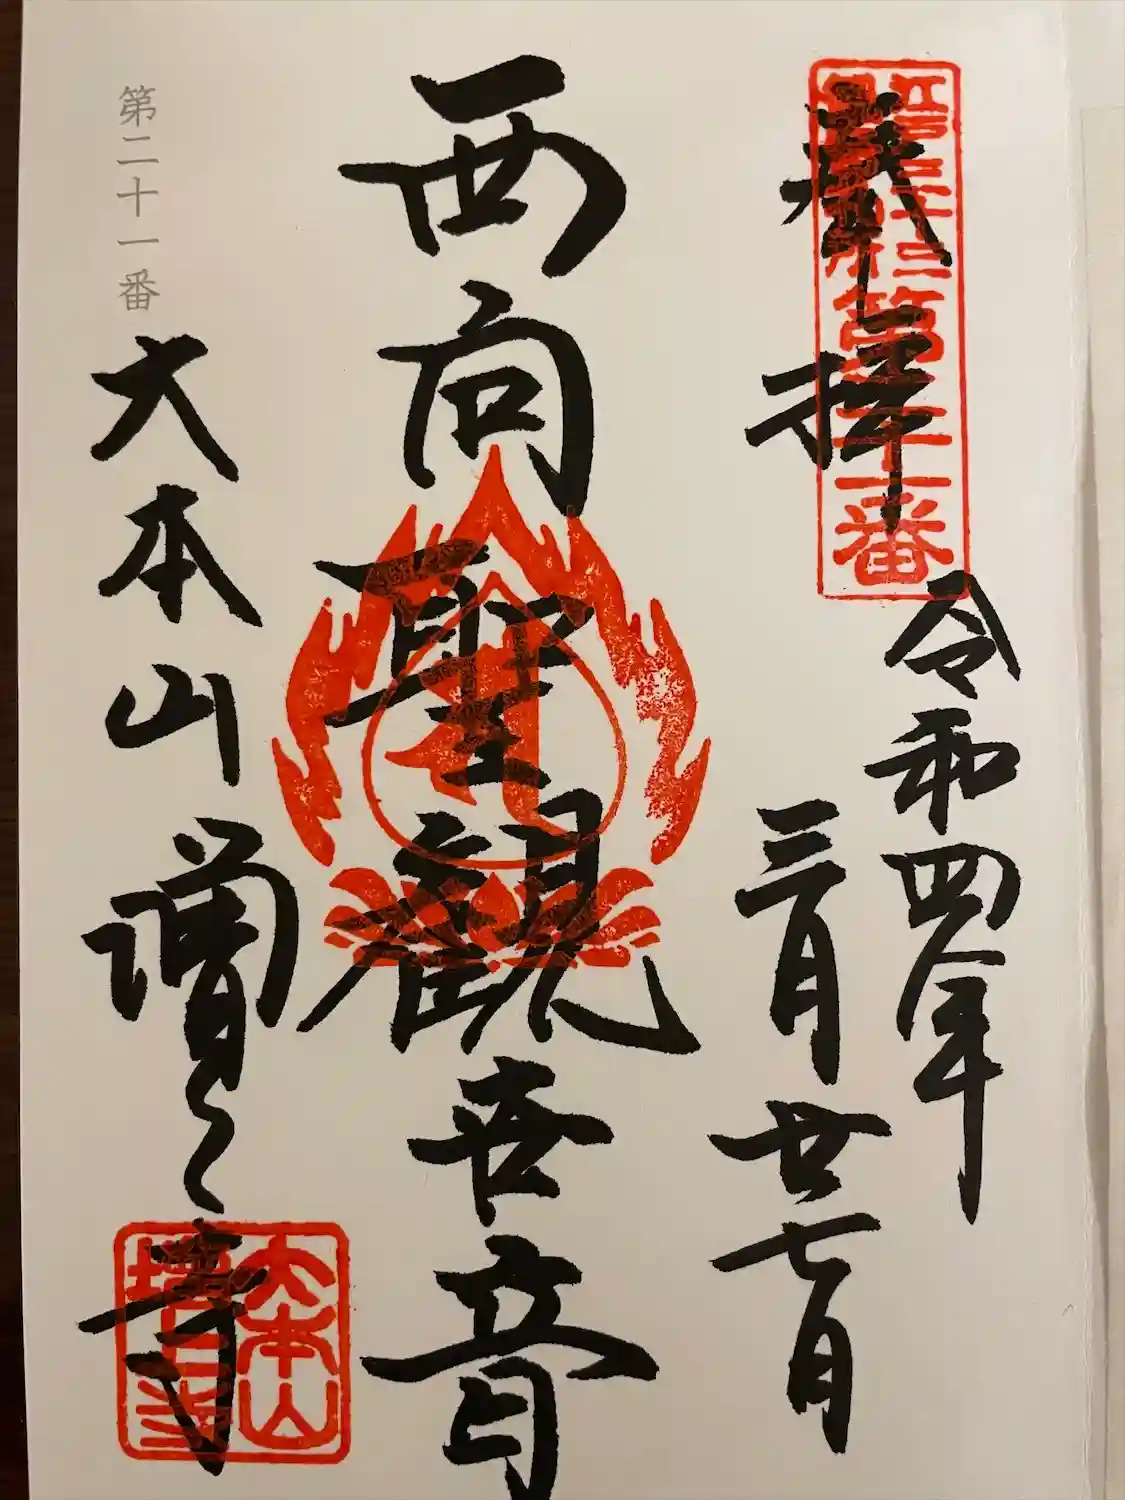 奉拝
江戸三十三
観音札所
第二十一番
令和四年
三月廿七日
西向聖観世音
第二十一番
大本山増上寺
大本山
増上寺